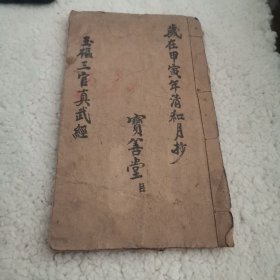 歲在甲寅年清和月抄
寶善堂目
玉樞三官真武經